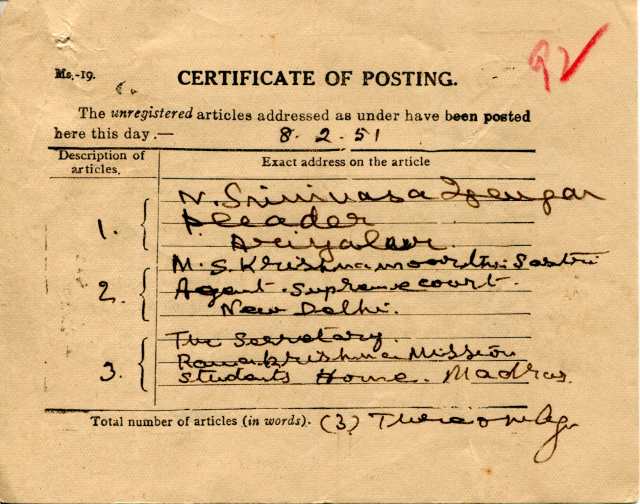 Ms.-19.
92
CERTIFICATE OF POSTING.
The unregistered articles addressed as under have been posted
here this day.— 8.2.51
Description of articles.
Exact address on the article
1. { N. Srinivasa Iyengar
Pleader
Ariyalur.
2. { M. S. Krishnamoorthi Sastri
Agent. Supreme court.
New Delhi.
3. { The Secretary.
Ramakrishna Mission
Students Home. Madras.
Total number of articles (in words). (3) Three only